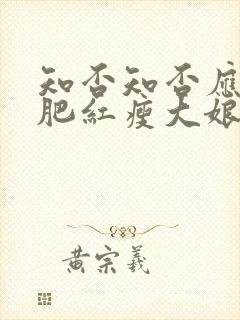 知否知否應
肥紅瘦大娘
黃宗羲